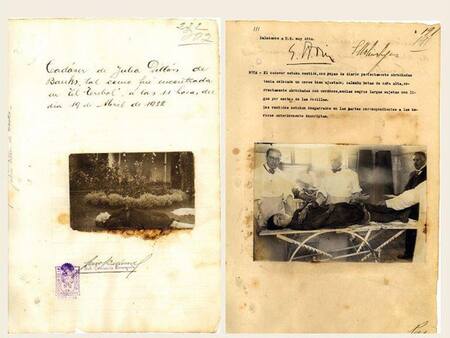 Cadáver de Julia
Banks, tal como fue encontrada
en "El Trebol", a las 11 horas, del
día 19 de Abril de 1922
111
Saludamos a S.S. muy atte.
NOTA - El cadáver estaba vestido, con ropas de diario perfectamente abrochadas
tenía colocado un corsé bien ajustado, calzaba botas de caña alta, co-
rrectamente abrochadas con cordones, medias negras largas sujetas con li-
gas por encima de las rodillas.
Los vestidos estaban desgarrados en las partes correspondientes a las he-
ridas anteriormente descriptas.